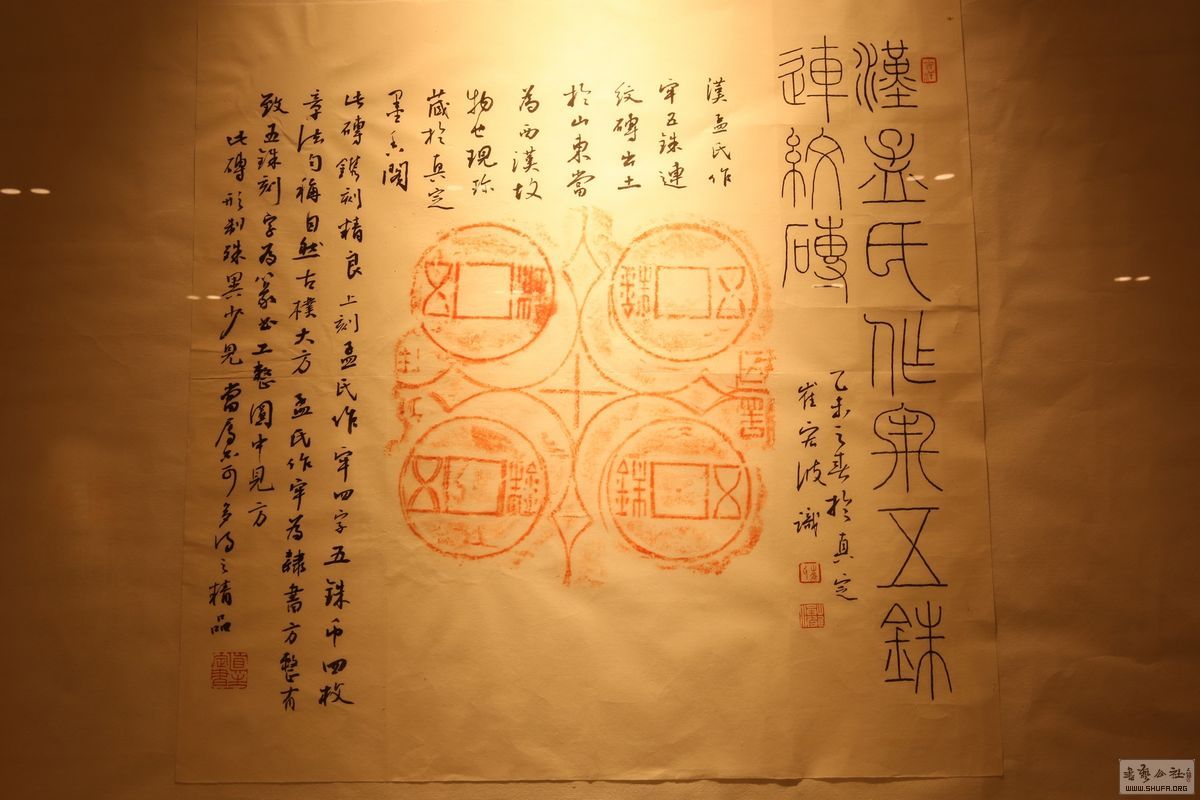 漢孟氏作牢五銖
連紋磚
乙未之春於真定
崔宏波識
漢孟氏作
牢五銖連
紋磚出土
於山東當
為西漢故
物也現珍
藏於真定
墨香閣
五銖
五銖
五銖
五銖
此磚鐫刻精良上刻孟氏作牢四字五銖币四枚
章法匀稱自然古樸大方孟氏作牢為隸書方整有
致五銖刻字為篆書工整圓中見方
此磚形制殊異少見當屬不可多得之精品
WWW.SHUFA.ORG